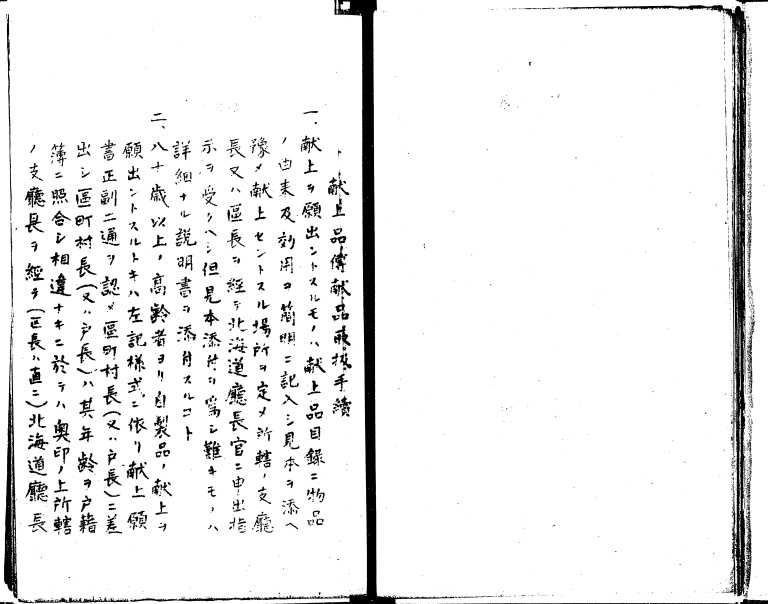 献上品傳献品取扱手續
一、献上ヲ願出ントスルモノハ献上品目録ニ物品
ノ由来及効用ヲ簡明ニ記入シ見本ヲ添ヘ
豫メ献上セントスル場所ヲ定メ所轄ノ支廳
長又ハ區長ヲ經テ北海道廳長官ニ申出指
示ヲ受クヘシ但見本添付シ為シ難キモノハ
詳細ナル説明書ヲ添付スルコト
二、八十歳以上ノ高齢者ヨリ自製品ノ献上ヲ
願出ントスルトキハ左記様式ニ依リ献上願
書正副二通ヲ認メ區町村長(又ハ戸長)ニ差
出シ區町村長(又ハ戸長)ハ其年齢ヲ戸籍
簿ニ照合シ相違ナキニ於テハ奥印ノ上所轄
ノ支廳長ヲ經テ(区長ハ直ニ)北海道廳長